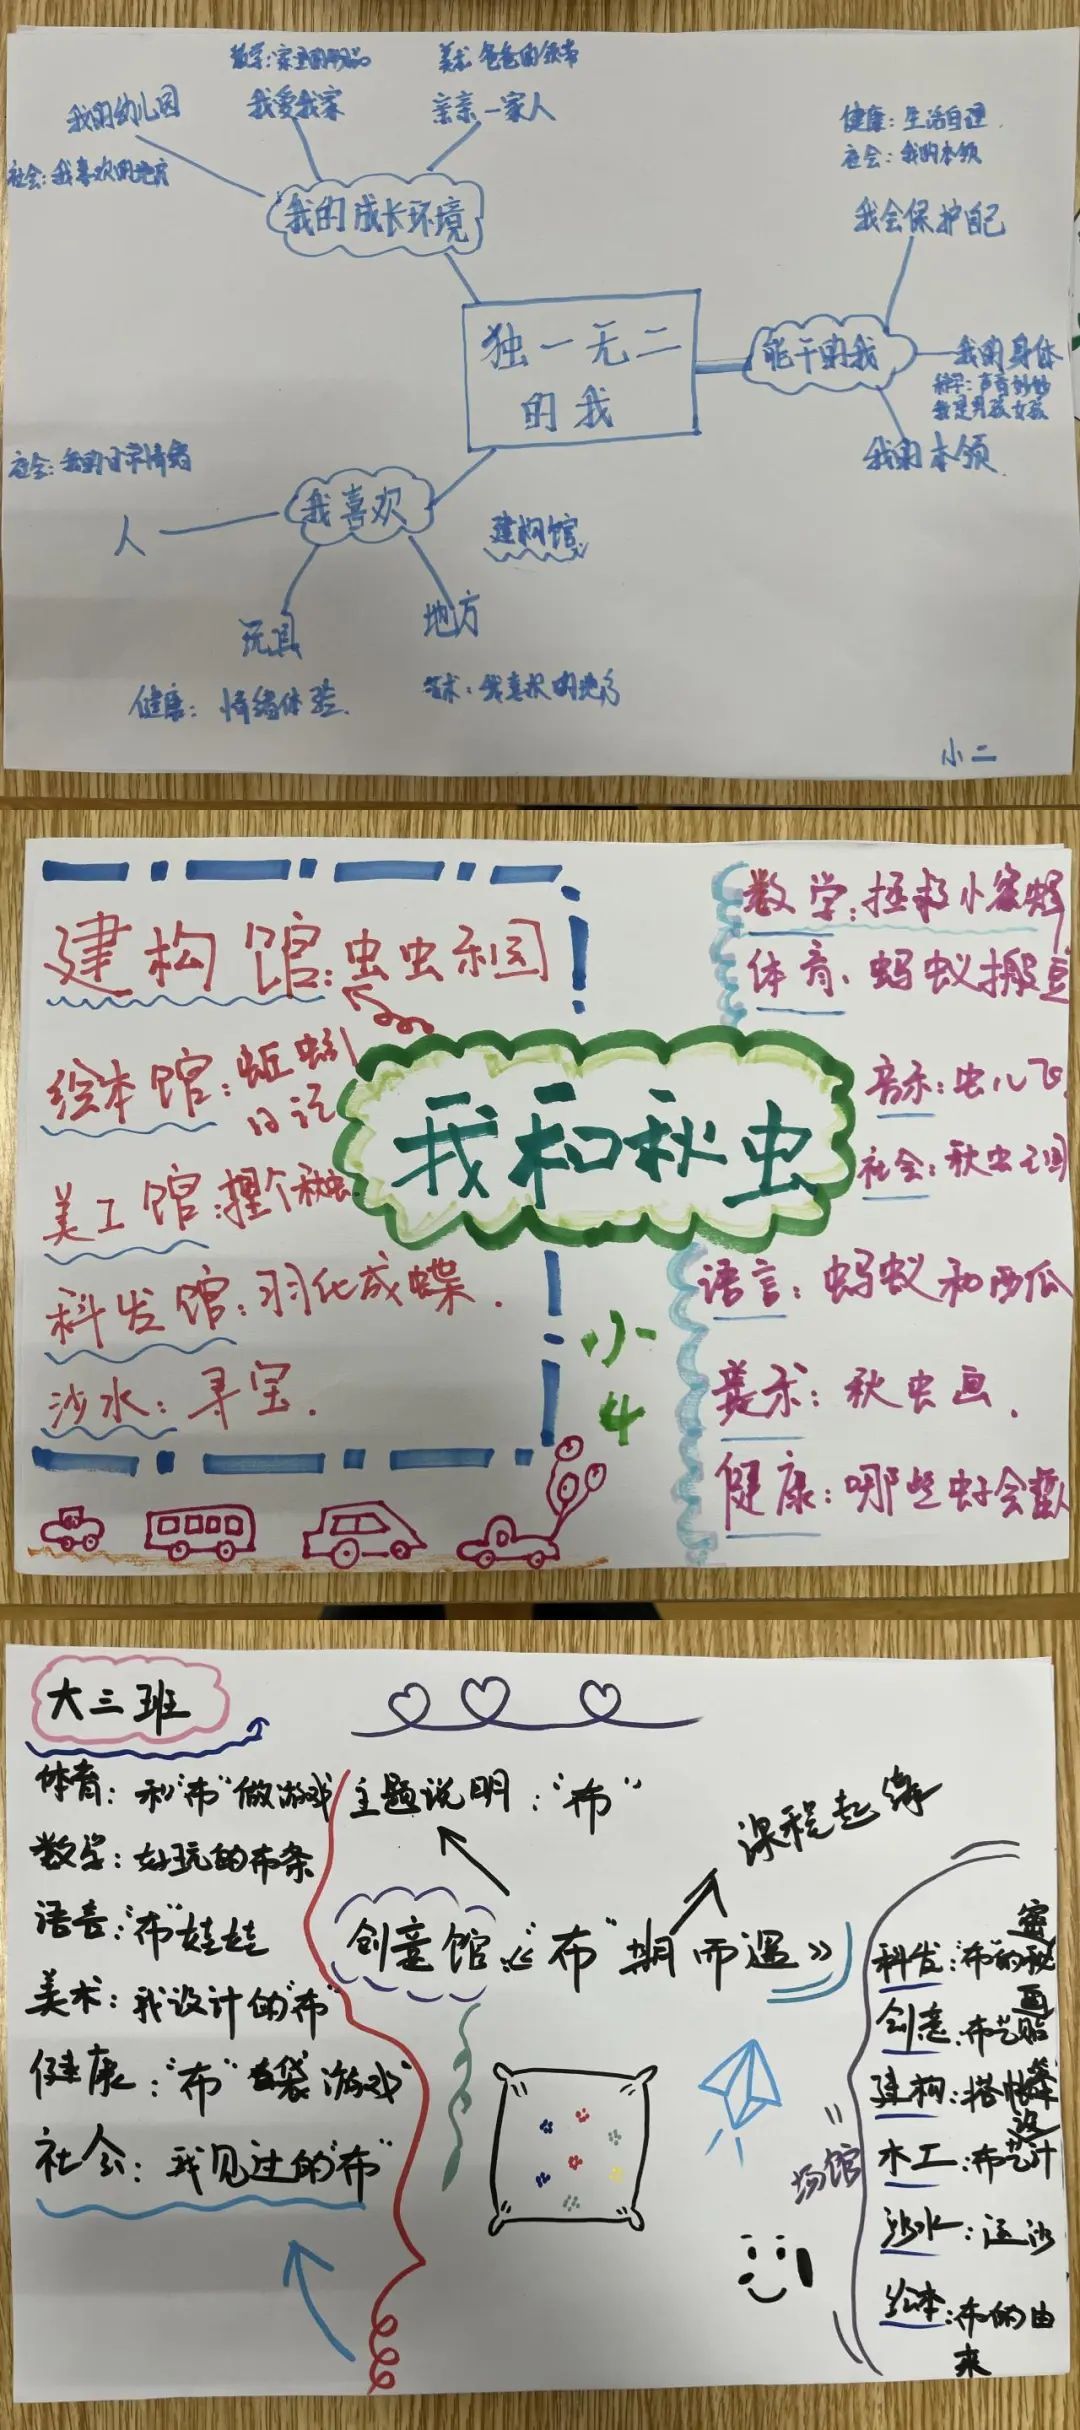 数学:家里的用品
美术:爸爸的领带
我的幼儿园
我爱我家
亲亲一家人
社会:我喜欢的地方
我的成长环境
健康:生活自理
社会:我的本领
我会保护自己
独一无二
的我
能干的我
我的身体
科学:声音妙妙
我是男孩女孩
我的本领
社会:我的日常情绪
人
我喜欢
建构馆
玩具
地方
健康:情绪体验
美术:我喜欢的地方
小二
建构馆:虫虫乐园
绘本馆:蚯蚓
日记
美工馆:捏个秋虫
科发馆:羽化成蝶.
沙水:寻宝.
我和秋虫
小4
数学:拯救小蜜蜂
体育:蚂蚁搬豆
音乐:虫儿飞
社会:秋虫王国
语言:蚂蚁和西瓜
美术:秋虫画.
健康:哪些虫子会蜇人
大三班
体育:和"布"做游戏
数学:好玩的布条
语言:"布"娃娃
美术:我设计的"布"
健康:"布"袋游戏
社会:我见过的"布"
主题说明:"布"
课程起缘
创意馆:《"布"期而遇》
场馆
科发:"布"的秘密
创意:布艺贴画
建构:搭帐篷
木工:布艺设计
沙水:运沙
绘本:布的由
来